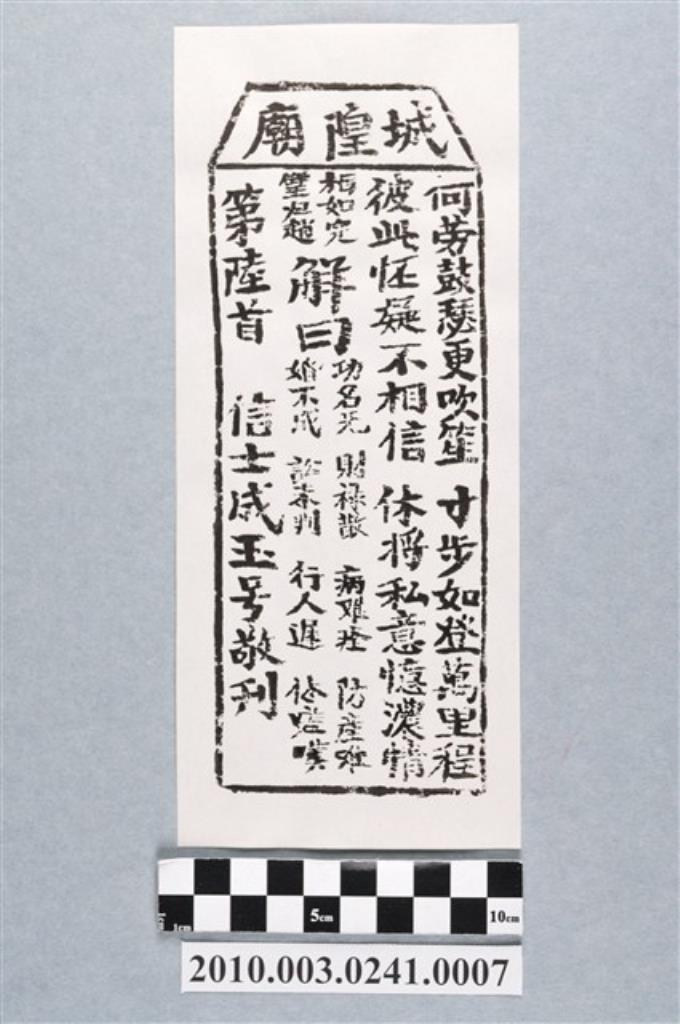 城隍廟
何勞鼓瑟更吹笙 寸步如登萬里程
彼此怀疑不相信 休將私意憶濃情
相如完
璧归趙
解曰
功名无 財祿散 病难痊 防產难
婚不成 訟未判 行人遲
第陸首 信士成玉号敬刊
1cm 5cm 10cm
2010.003.0241.0007